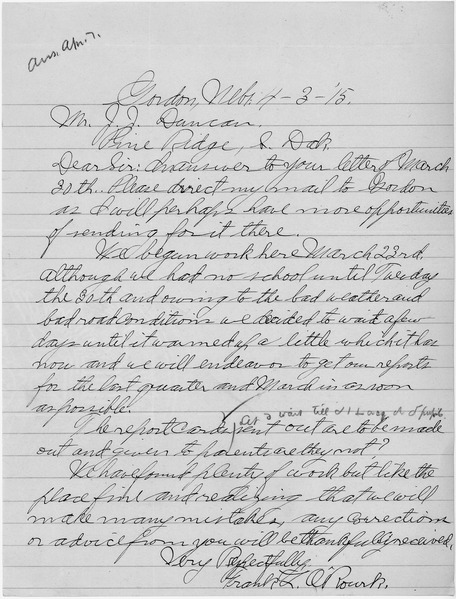 Ans. Apr. 7.
Gordon, Nebr. 4-3-'15.
Mr. J. J. Duncan.
Pine Ridge, S. Dak.
Dear Sir: In answer to your letter of March
30th. Please direct my mail to Gordon
as I will perhaps have more opportunities
of sending for it there.
We began work here March 23rd.
although we had no school until Tuesday
the 30th and owing to the bad weather and
bad road conditions we decided to wait a few
days until it warmed up a little which it has
now and we will endeavor to get our reports
for the last quarter and March in as soon
as possible.
The report cards sent out are to be made
out and given to parents are they not?
We have found plenty of work but like the
place fine and realizing that we will
make many mistakes, any corrections
or advice from you will be thankfully received.
Very Respectfully,
Frank L. O'Rourk.